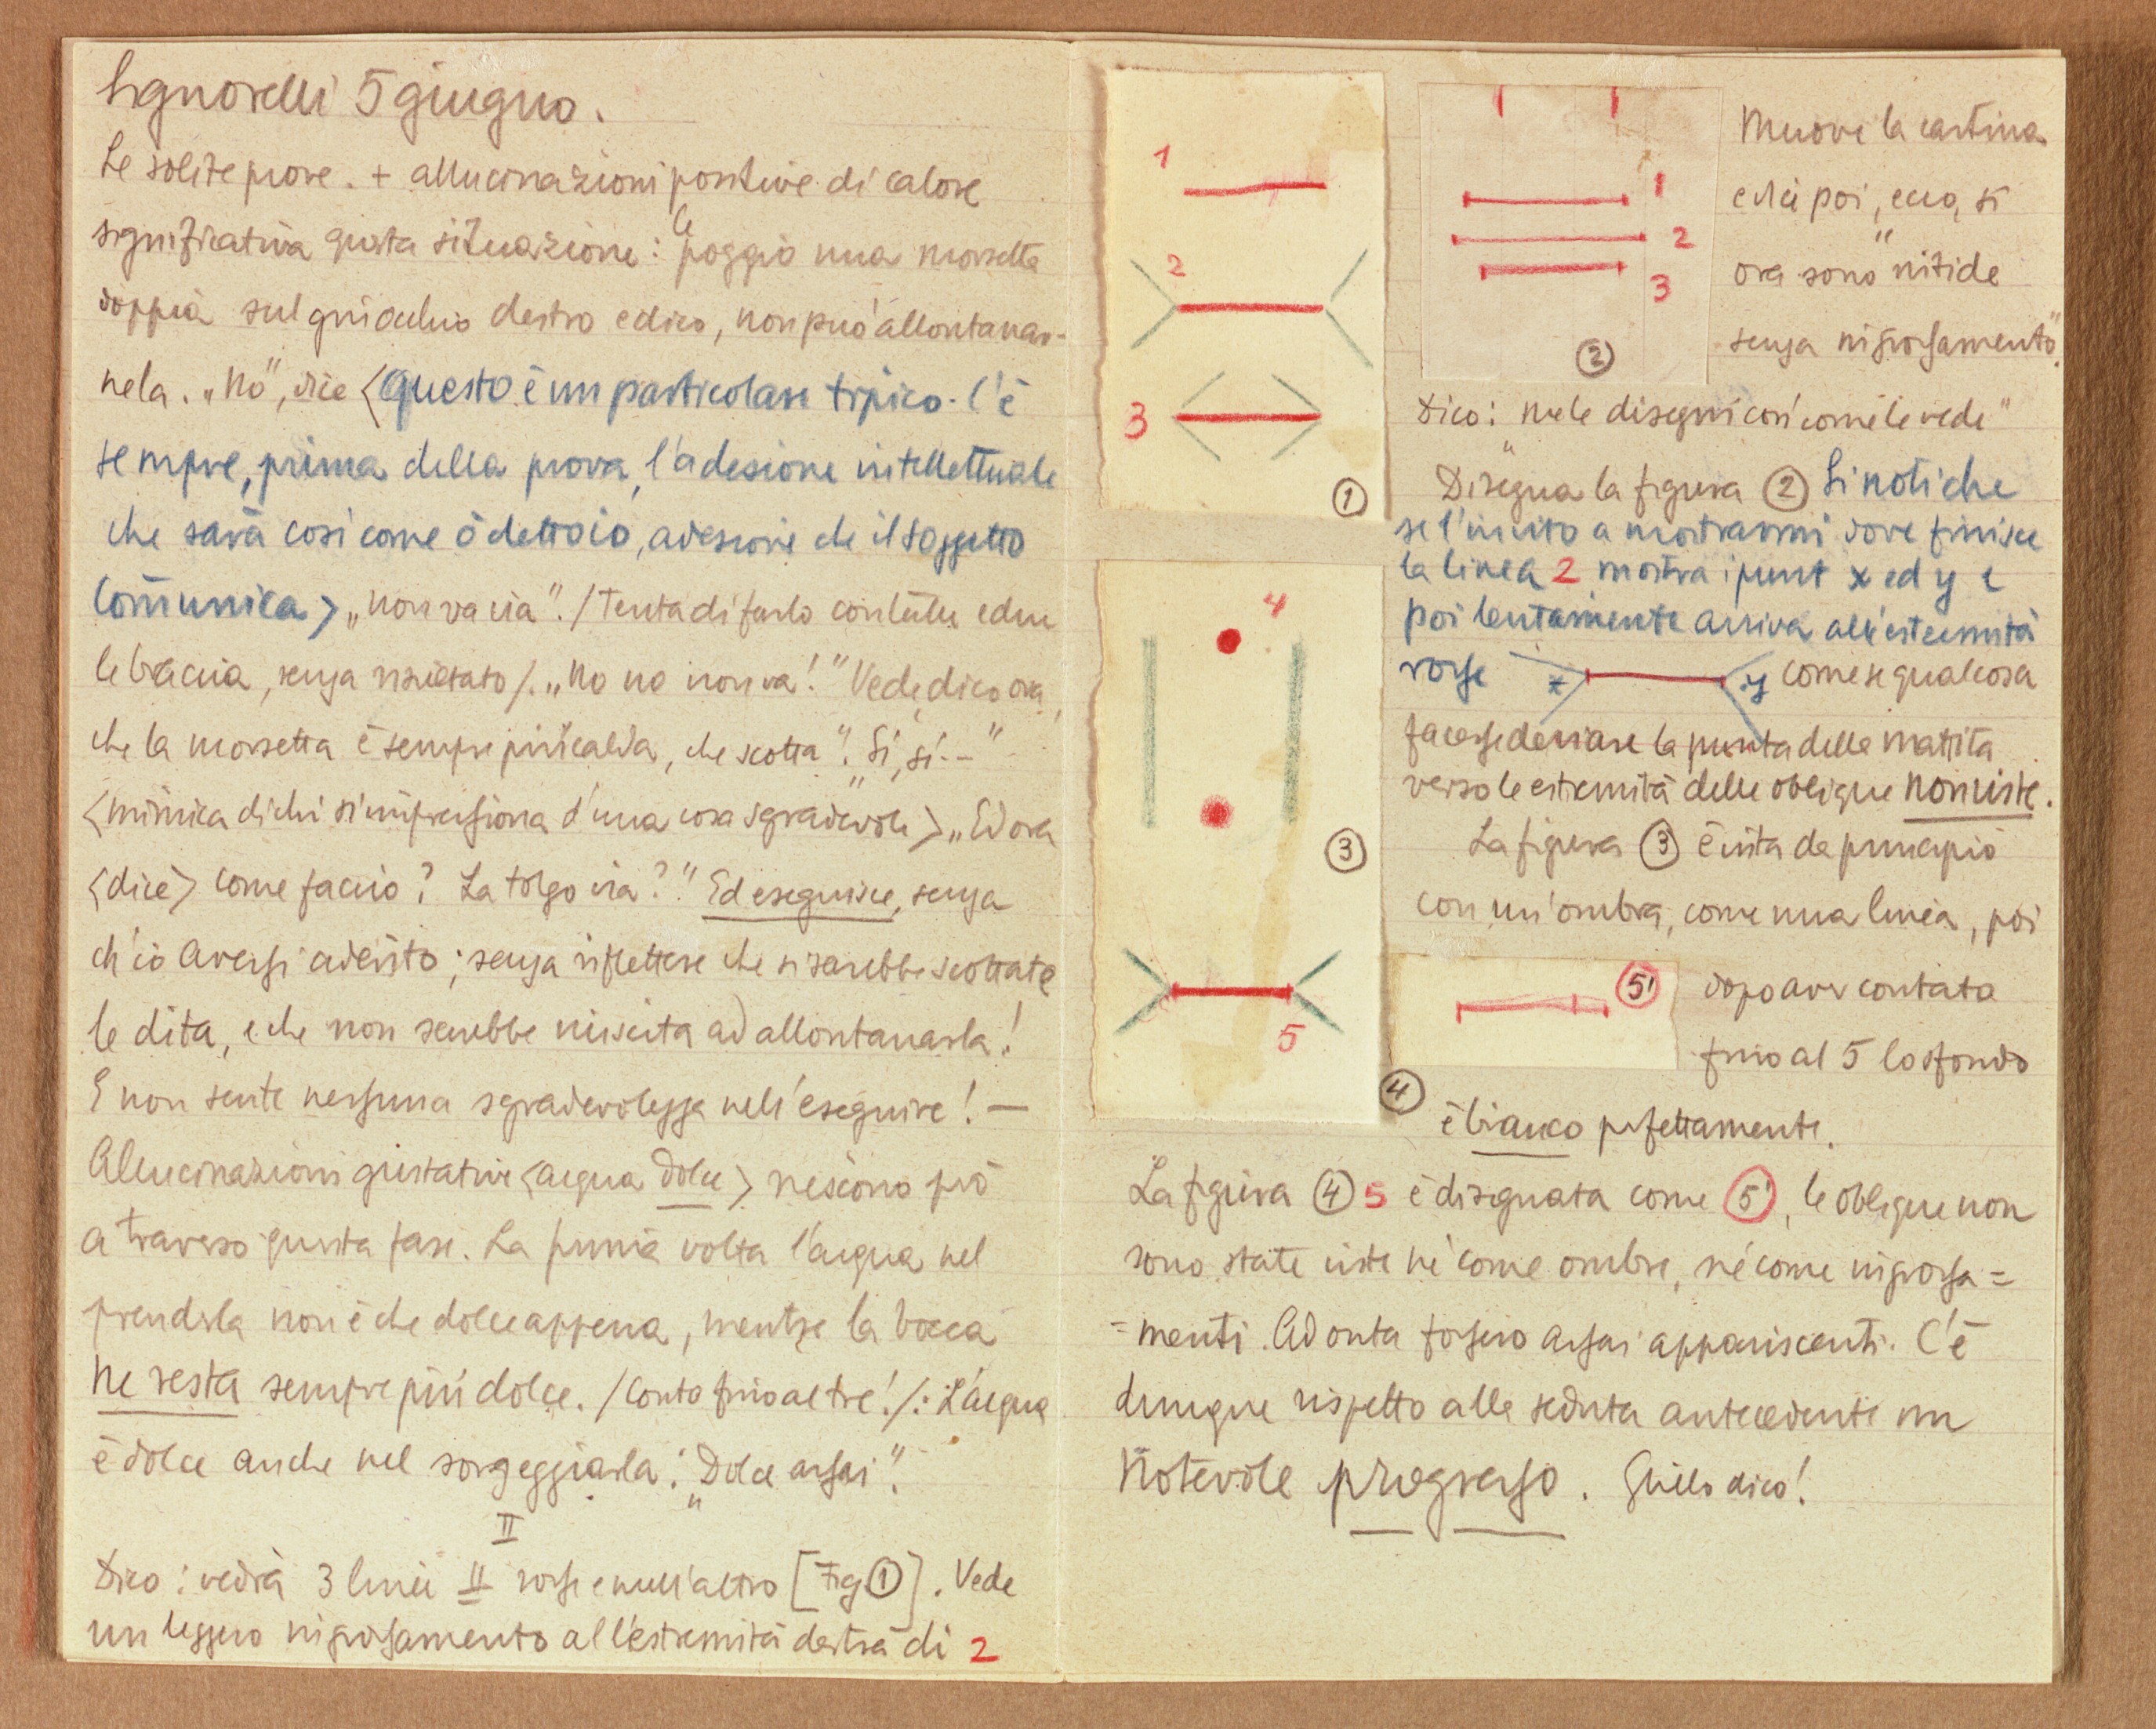 Signorelli 5 giugno.
Le solite prove. + allucinazioni positive di calore
significativa questa situazione: le poggio una morsetta
doppia sul ginocchio destro e dico, non può allontanar-
nela. „No", dice <Questo è un particolare tipico. C'è
sempre, prima della prova, l'adesione intellettuale
che sarà così come ò detto io, adesione che il soggetto
comunica> „non va via". /Tenta di farlo con tutte e due
le braccia, senza risultato/. „No no non va!" Vede, dico ora,
che la morsetta è sempre più calda, che scotta". „Sì, sì.–"
<mimica di chi s'impressiona d'una cosa sgradevole> „Ed ora
<dice> come faccio? La tolgo via?" Ed eseguisce, senza
ch'io avessi aderito; senza riflettere che si sarebbe scottate
le dita, e che non sarebbe riuscita ad allontanarla!
E non sente nessuna sgradevolezza nell'eseguire! —
Allucinazioni gustative <acqua dolce> riescono però
a traverso questa fase. La prima volta l'acqua nel
prenderla non è che dolce appena, mentre la bocca
ne resta sempre più dolce. /Conto fino al tre!/: L'acqua
è dolce anche nel sorseggiarla: „Dolce assai".
II
Dico: vedrà 3 linee II rosse e null'altro [Fig ①]. Vede
un leggero ingrossamento all'estremità destra di 2
1
2
3
①
4
③
5
④
1
2
3
②
Muove la cartina
e dice poi, ecco, sì
ora sono "nitide
senza ingrossamento".
Dico: "me le disegni così come le vede"
Disegna la figura ② Si noti che
se l'invito a mostrarmi dove finisce
la linea 2 mostra i punt x ed y e
poi lentamente arriva all'estremità
rosse x y come se qualcosa
facesse deviare la punta della matita
verso le estremità delle oblique non viste.
La figura ③ è vista da principio
con un'ombra, come una linea, poi
5'
dopo aver contata
fino al 5 lo sfondo
è bianco perfettamente.
La figura ④ 5 è disegnata come 5', le oblique non
sono state viste nè come ombre, nè come ingrossa=
=menti. Ad onta fossero assai appariscenti. C'è
dunque rispetto alla seduta antecedente un
notevole progresso.